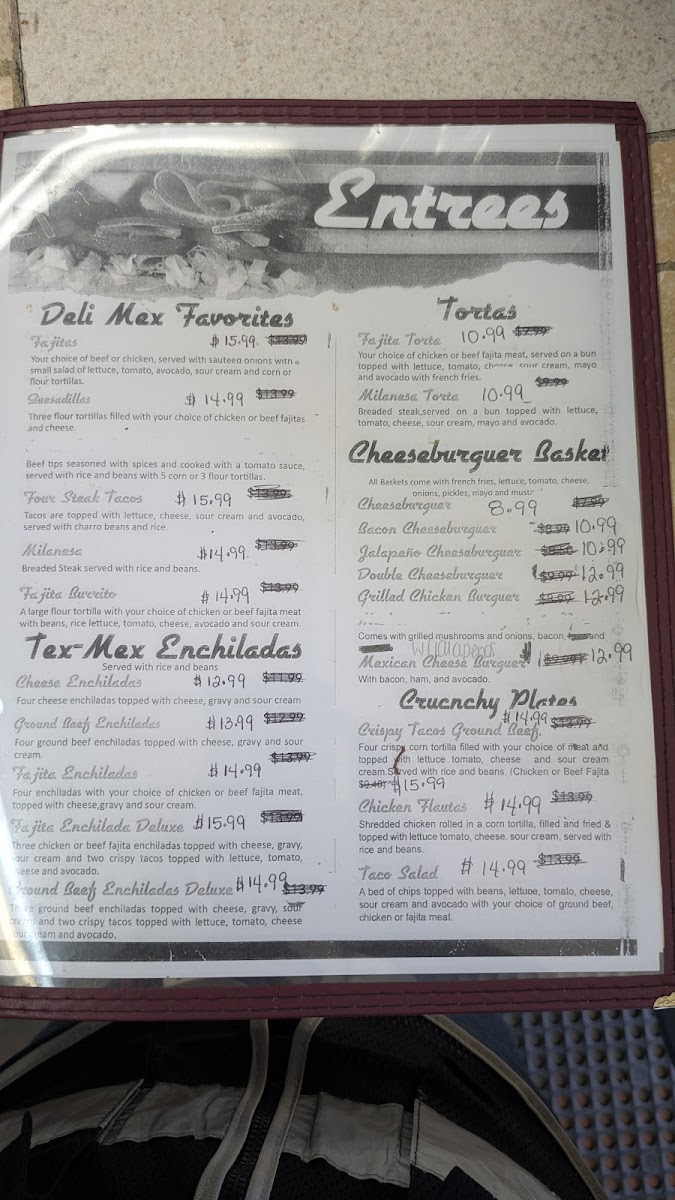 Entrees
Deli Mex Favorites
Fajitas $15.99 $13.99
Your choice of beef or chicken, served with sauteed onions with a
small salad of lettuce, tomato, avocado, sour cream and corn or
flour tortillas.
Quesadillas $14.99 $13.99
Three flour tortillas filled with your choice of chicken or beef fajitas
and cheese.
Beef tips seasoned with spices and cooked with a tomato sauce,
served with rice and beans with 5 corn or 3 flour tortillas.
Four Steak Tacos $15.99 $13.99
Tacos are topped with lettuce, cheese, sour cream and avocado,
served with charro beans and rice.
Milanesa $14.99 $13.99
Breaded Steak served with rice and beans.
Fajita Burrito $14.99 $13.99
A large flour tortilla with your choice of chicken or beef fajita meat
with beans, rice lettuce, tomato, cheese, avocado and sour cream.
Tex-Mex Enchiladas
Served with rice and beans
Cheese Enchiladas $12.99 $11.99
Four cheese enchiladas topped with cheese, gravy and sour cream
Ground Beef Enchiladas $13.99 $12.99
Four ground beef enchiladas topped with cheese, gravy and sour
cream.
Fajita Enchiladas $14.99 $13.99
Four enchiladas with your choice of chicken or beef fajita meat,
topped with cheese,gravy and sour cream.
Fajita Enchilada Deluxe $15.99 $13.99
Three chicken or beef fajita enchiladas topped with cheese, gravy,
sour cream and two crispy tacos topped with lettuce, tomato,
cheese and avocado.
Ground Beef Enchiladas Deluxe $14.99 $13.99
Three ground beef enchiladas topped with cheese, gravy, sour
cream and two crispy tacos topped with lettuce, tomato, cheese
sour cream and avocado.
Tortas
Fajita Torta 10.99 $7.99
Your choice of chicken or beef fajita meat, served on a bun
topped with lettuce, tomato, cheese sour cream, mayo
and avocado with french fries.
Milanesa Torta 10.99 $9.99
Breaded steak,served on a bun topped with lettuce,
tomato, cheese, sour cream, mayo and avocado.
Cheeseburguer Basket
All Baskets come with french fries, lettuce, tomato, cheese,
onions, pickles, mayo and
Cheeseburguer 8.99 $7.99
Bacon Cheeseburguer $8.99 10.99
Jalapeño Cheeseburguer $8.50 10.99
Double Cheeseburguer $9.99 12.99
Grilled Chicken Burguer $8.99 12.99
Comes with grilled mushrooms and onions, bacon, and
w/jalapenos
Mexican Cheese Burguer 12.99
With bacon, ham, and avocado.
Crucnchy Plates
$14.99 $13.99
Crispy Tacos Ground Beef.
Four crispy corn tortilla filled with your choice of meat and
topped with lettuce tomato, cheese and sour cream
cream.Served with rice and beans. (Chicken or Beef Fajita
$15.99
Chicken Flautas $14.99 $13.99
Shredded chicken rolled in a corn tortilla, filled and fried &
topped with lettuce tomato, cheese. sour cream, served with
rice and beans.
Taco Salad $14.99 $13.99
A bed of chips topped with beans, lettuce, tomato, cheese,
sour cream and avocado with your choice of ground beef,
chicken or fajita meat.